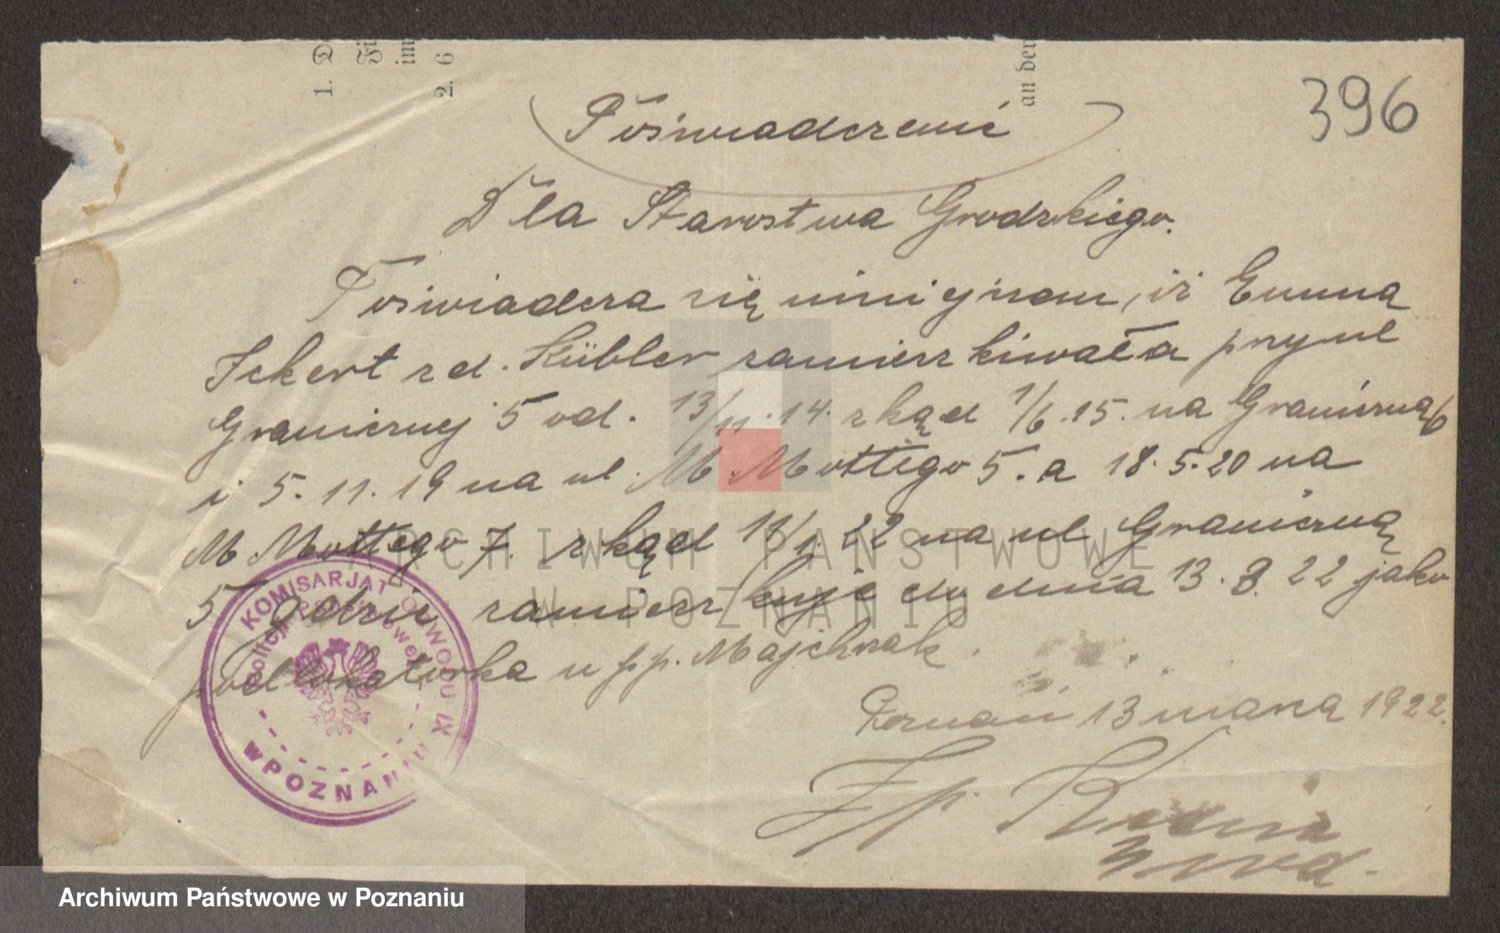 1. D
Fi
im
2. 6
an der
396
Poświadczenie
Dla Starostwa Grodzkiego.
Poświadcza się niniejszem, iż Emma
Ickert zd. Kübler zamieszkiwała przy ul
Granicznej 5 od. 13/11.14. zkąd 1/6.15. na Graniczną 6
i 5.11.19 na ul. M Mottego 5. a 18.5.20 na
M Mottego 7. zkąd 11/1 22 na ul Graniczną
5 gdzie zamieszkuje do dnia 13.3.22 jako
podlokatorka u pp. Majchrzak.
Poznań 13 marca 1922.
KOMISARJAT OBWODU IX
Policji Państwowej
W POZNANIU
ARCHIWUM PAŃSTWOWE
W POZNANIU
Archiwum Państwowe w Poznaniu